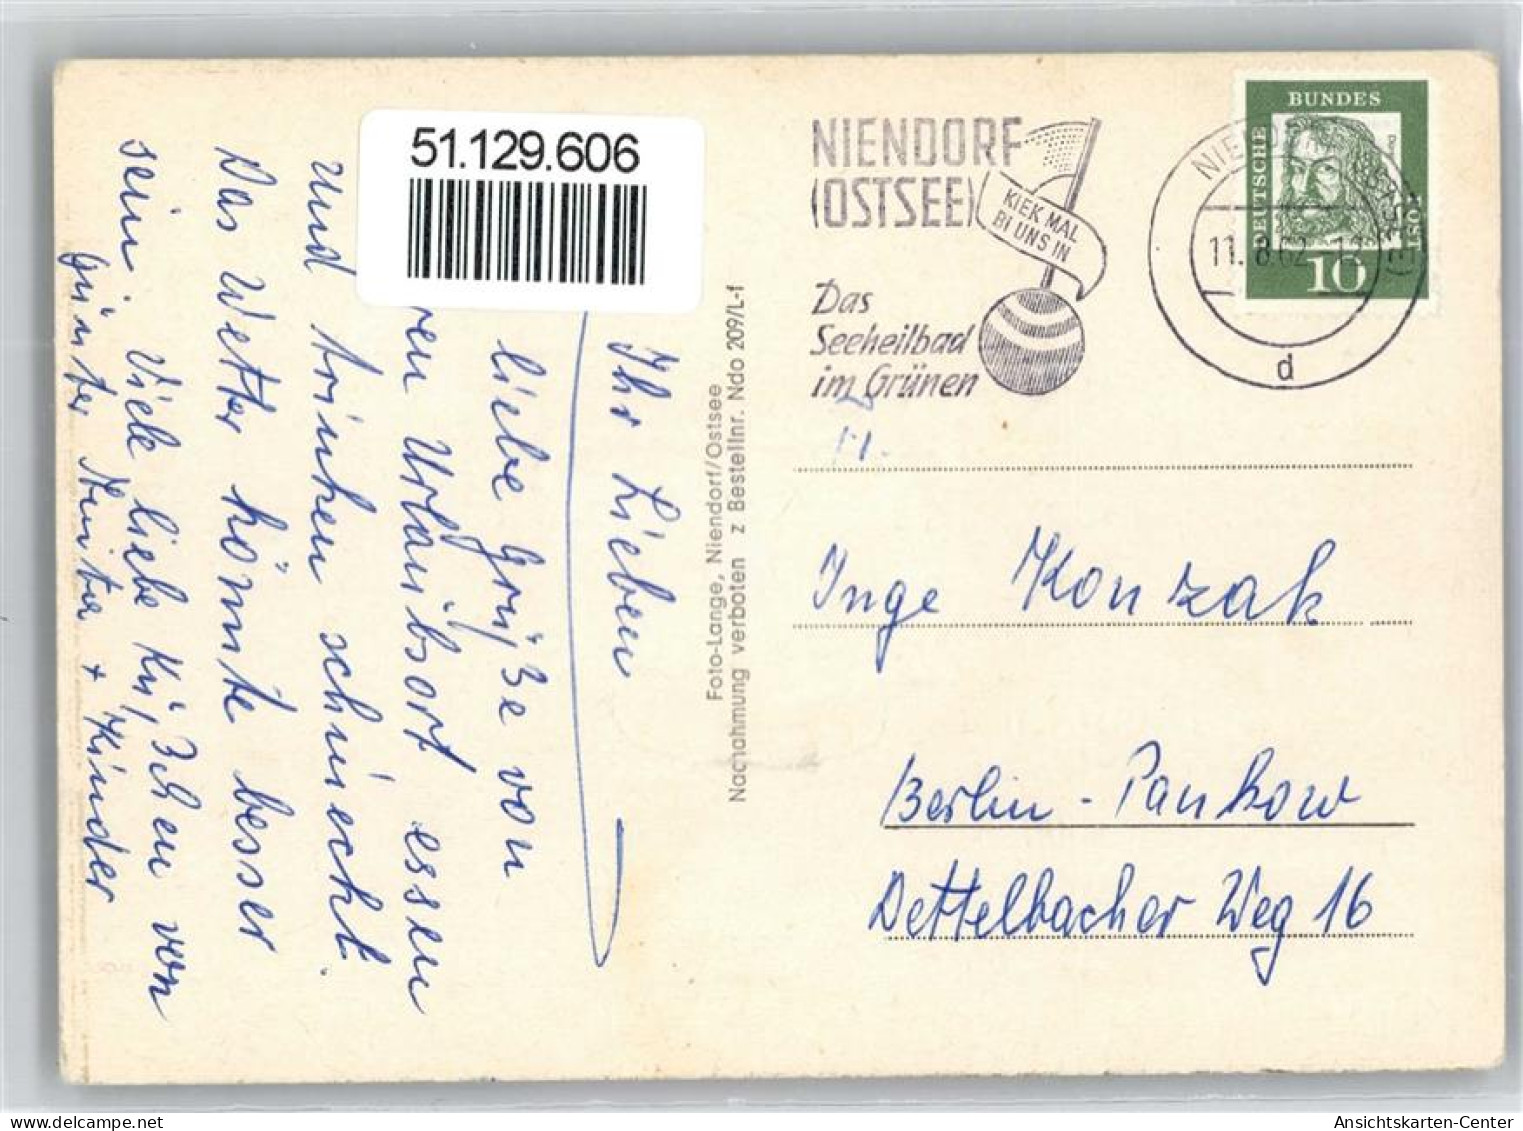 51.129.606
Ihr Lieben
liebe Grüße von
ren Urlaubsort essen
und trinken schmeckt.
Das Wetter könnte besser
sein. Viele liebe Küßchen von
Günter Anita + Kinder
Foto-Lange, Niendorf/Ostsee
Nachahmung verboten z Bestellnr. Ndo 209/L-f
NIENDORF
(OSTSEE)
KIEK MAL
BI UNS IN
Das
Seeheilbad
im Grünen
11.8.62
d
DEUTSCHE
BUNDES
POST
10
Inge Konzak
Berlin-Pankow
Dettelbacher Weg 16
Ansichtskarten-Center